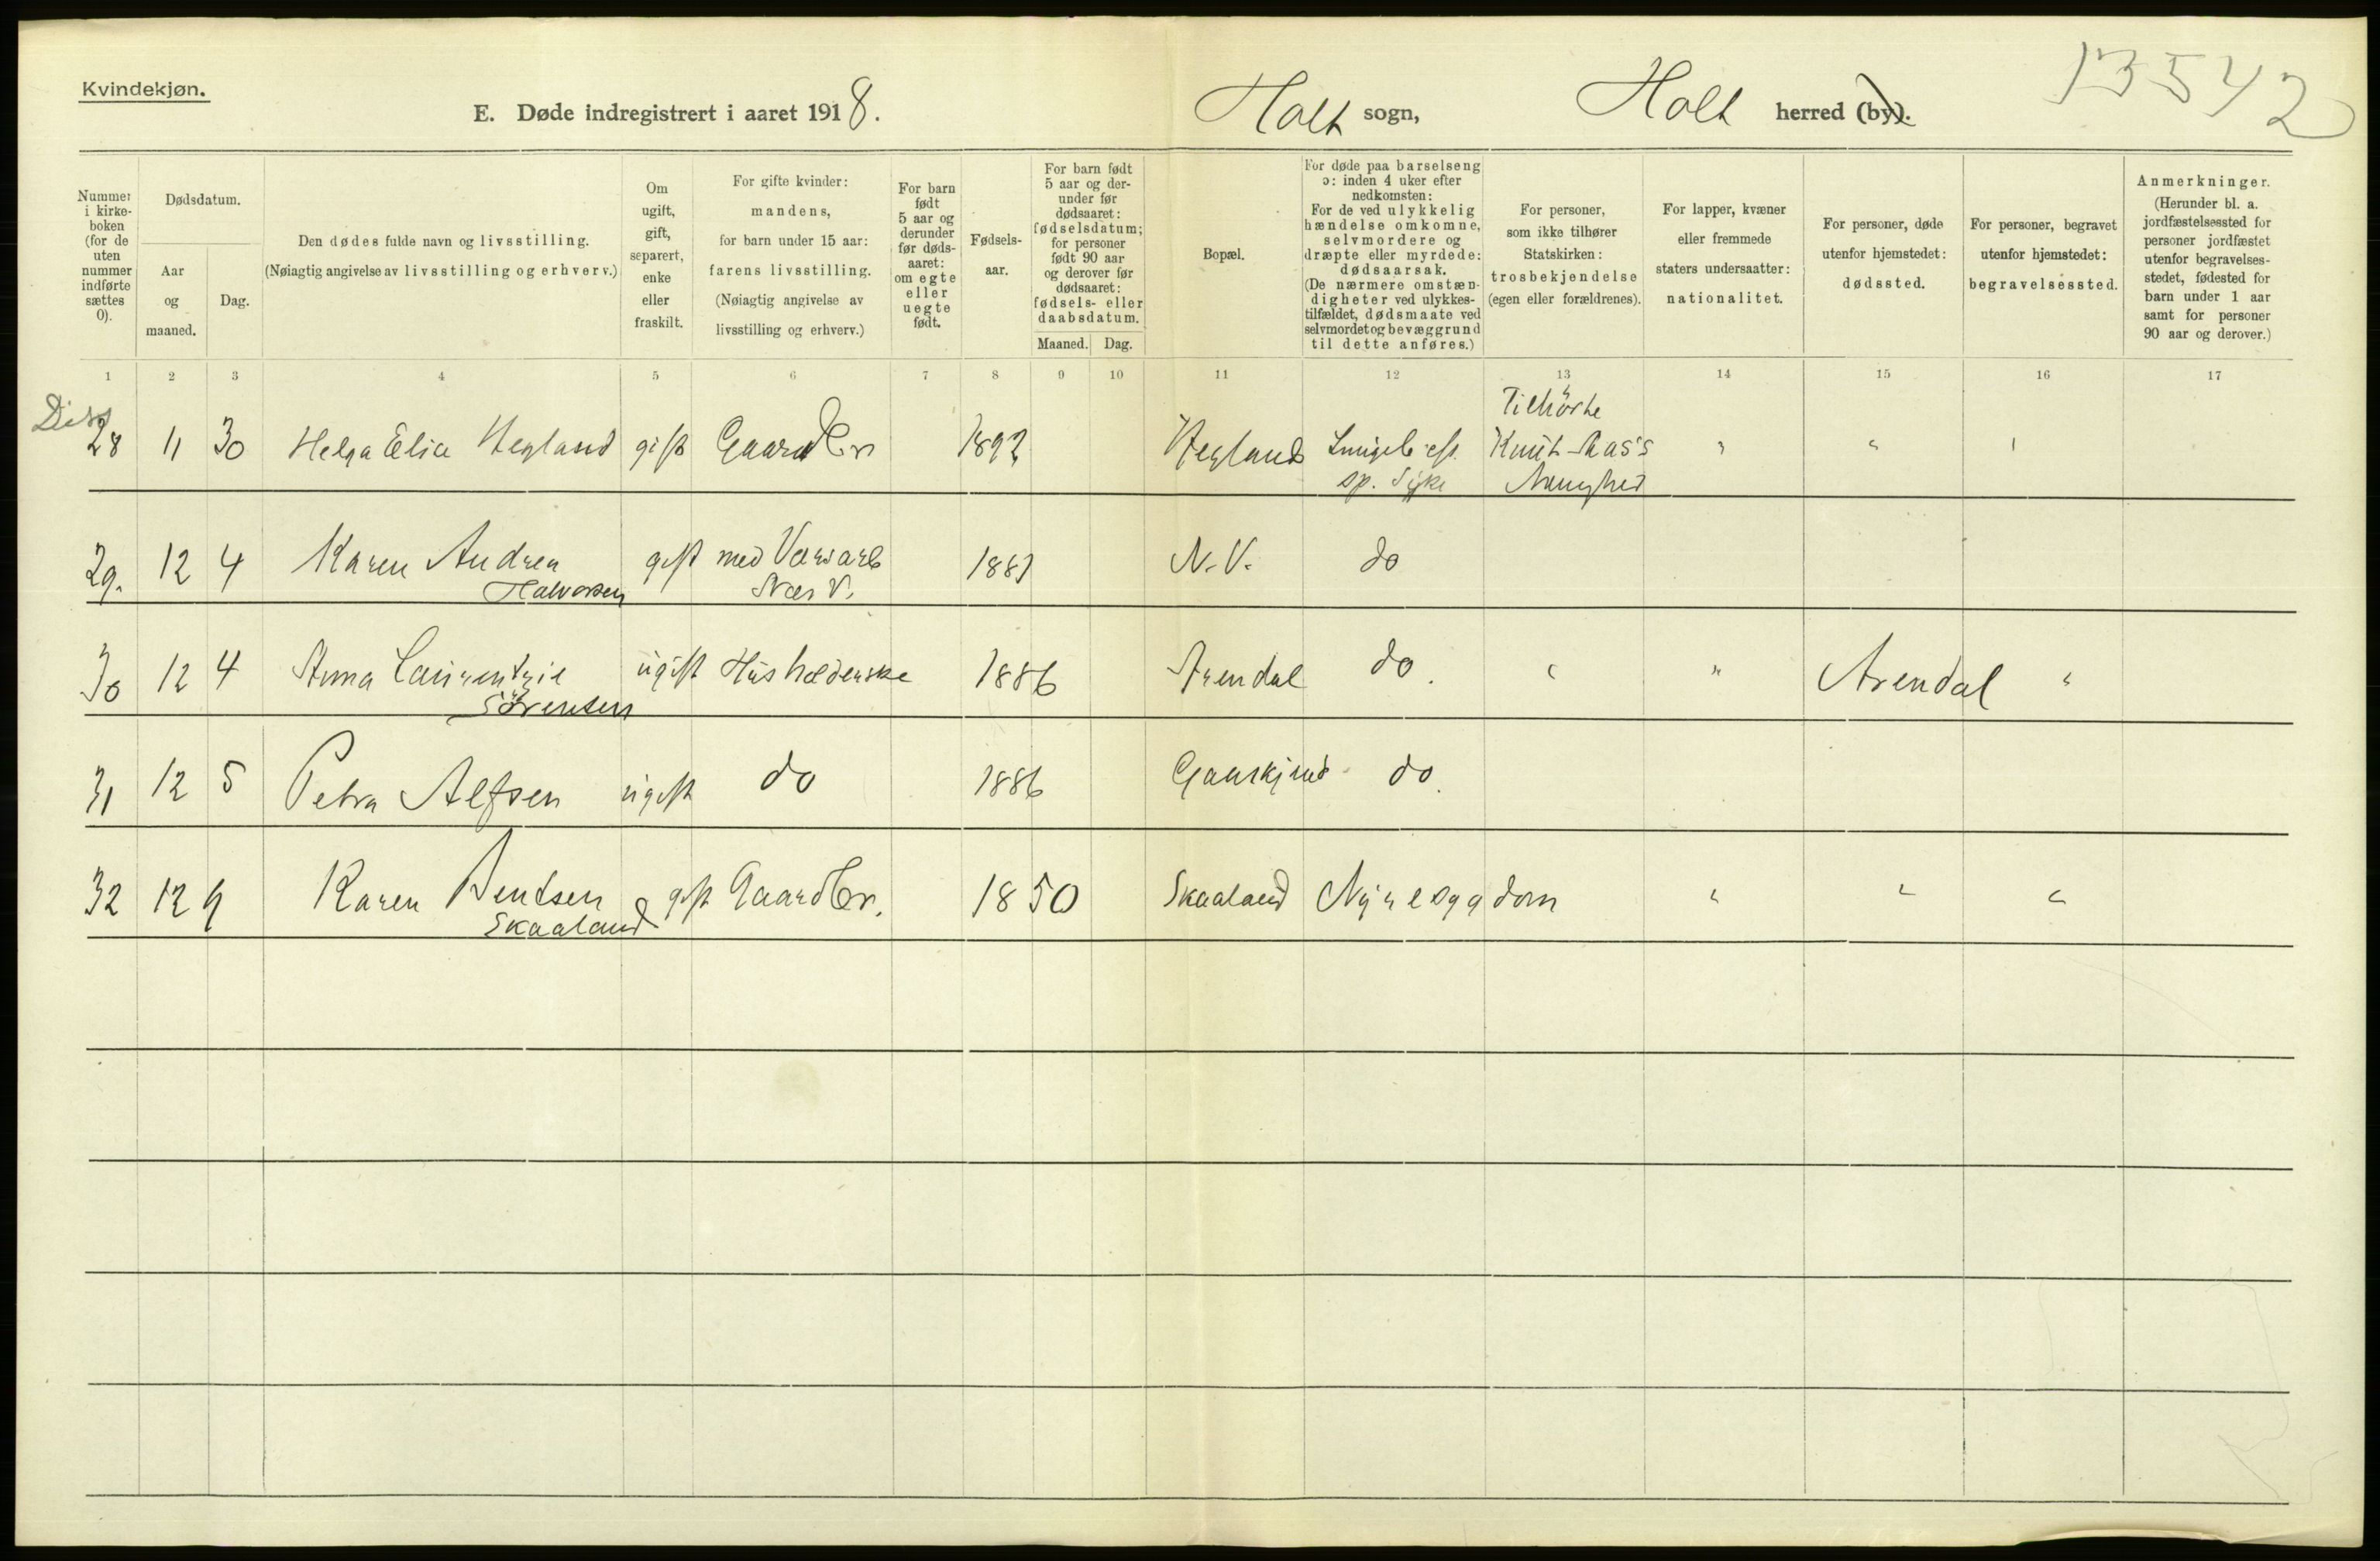 Kvindekjøn.
E. Døde indregistrert i aaret 1918.
Holt sogn,
Holt herred (by).
13542
Nummer i kirke-boken (for de uten nummer indførte sættes 0).
Dødsdatum.
Aar og maaned.
Dag.
Den dødes fulde navn og livsstilling.
(Nøiagtig angivelse av livsstilling og erhverv.)
Om ugift, gift, separert, enke eller fraskilt.
For gifte kvinder: mandens, for barn under 15 aar: farens livsstilling.
(Nøiagtig angivelse av livsstilling og erhverv.)
For barn født 5 aar og derunder før døds-aaret: om egte eller uegte født.
Fødsels-aar.
For barn født 5 aar og der-under før dødsaaret: fødselsdatum; for personer født 90 aar og derover før dødsaaret: fødsels- eller daabsdatum.
Maaned. Dag.
Bopæl.
For døde paa barselseng ɔ: inden 4 uker efter nedkomsten:
For de ved ulykkelig hændelse omkomne, selvmordere og dræpte eller myrdede: dødsaarsak.
(De nærmere omstæn-digheter ved ulykkes-tilfældet, dødsmaate ved selvmordet og bevæggrund til dette anføres.)
For personer, som ikke tilhører Statskirken: trosbekjendelse (egen eller forældrenes).
For lapper, kvæner eller fremmede staters undersaatter: nationalitet.
For personer, døde utenfor hjemstedet: dødssted.
For personer, begravet utenfor hjemstedet: begravelsessted.
Anmerkninger.
(Herunder bl. a. jordfæstelsessted for personer jordfæstet utenfor begravelses-stedet, fødested for barn under 1 aar samt for personer 90 aar og derover.)
1 2 3 4 5 6 7 8 9 10 11 12 13 14 15 16 17
Diss
28 11 30 Helga Elise Hegland gift Gaardbr 1892 Hegland sp. Syke Tilhørte Knut Aas's Menghed " " "
29. 12 4 Karen Andrea Halvorsen gift med Næs V. 1881 N. V. do
30 12 4 Anna Laurentzie Sørensen ugift Husholderske 1886 Arendal do. " " Arendal "
31 12 5 Petra Alfsen ugift do 1886 do.
32 12 9 Karen Bentsen Skaaland gift Gaardbr. 1850 Skaaland Nyresygdom " " "